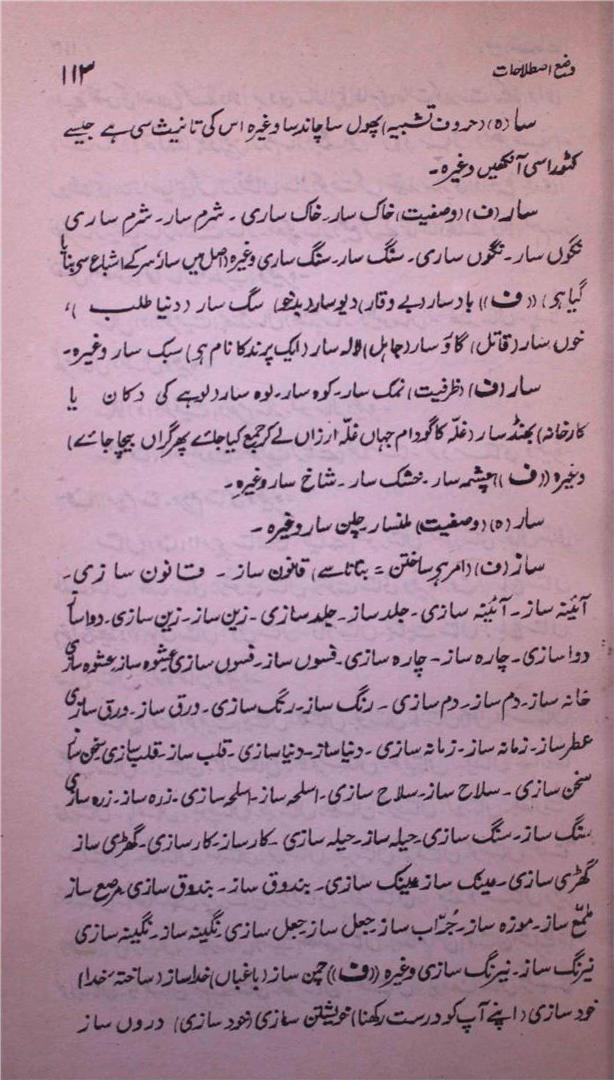 وضع اصطلاحات ۱۱۳
سا (ہ) (حروف تشبیہ) پھول سا چاند سا وغیرہ اس کی تانیث سی ہے جیسے
کٹورا سی آنکھیں وغیرہ۔
سار (ف) (وصفیت) خاک سار۔ خاک ساری ۔ شرم سار۔ شرم ساری
نگوں سار۔ نگوں ساری۔ سنگ سار۔ سنگ ساری وغیرہ (اصل میں سار سر کے اشباع سی بنایا
گیا ہی) ((ف)) باد سار (بے وقار) دیو سار (بدخو) سگ سار (دنیا طلب)،
خوں سار (قاتل) گاؤ سار (جاہل) لالہ سار (ایک پرند کا نام ہی) سبک سار وغیرہ۔
سار (ف) (ظرفیت) نمک سار۔ کوہ سار۔ لوہ سار (لوہے کی دکان یا
کارخانہ) بھنڈ سار (غلّہ کا گودام جہاں غلّہ ارزاں لے کر جمع کیا جائے پھر گراں بیچا جائے)
وغیرہ ((ف)) چشمہ سار۔ خشک سار۔ شاخ سار وغیرہ۔
سار (ہ) (وصفیت) ملنسار۔ چلن سار وغیرہ ۔
ساز (ف) (امر ہر ساختن = بنانا سے) قانون ساز ۔ قانون سازی۔
آئینہ ساز۔ آئینہ سازی ۔ جلد ساز۔ جلد سازی ۔ زین ساز۔ زین سازی۔ دوا ساز
دوا سازی ۔ چارہ ساز ۔ چارہ سازی ۔ فسوں ساز۔ فسوں سازی عشوہ ساز۔ عشوہ سازی
خانہ ساز۔ دم ساز۔ دم سازی ۔ رنگ ساز۔ رنگ سازی۔ ورق ساز۔ ورق سازی
عطر ساز۔ زمانہ ساز۔ زمانہ سازی ۔ دنیا ساز۔ دنیا سازی ۔ قلب ساز۔ قلب سازی سخن ساز
سخن سازی ۔ سلاح ساز۔ سلاح سازی ۔ اسلحہ ساز۔ اسلحہ سازی ۔ زرہ ساز۔ زرہ سازی
سنگ ساز۔ سنگ سازی۔ حیلہ ساز۔ حیلہ سازی ۔ کار ساز۔ کار سازی۔ گھڑی ساز
گھڑی سازی ۔ عینک ساز عینک سازی۔ بندوق ساز۔ بندوق سازی مرصع ساز
ملمّع ساز۔ موزہ ساز۔ جُرّاب ساز جعل ساز۔ جعل سازی۔ نگینہ ساز۔ نگینہ سازی
نیرنگ ساز۔ نیرنگ سازی وغیرہ ((ف)) چمن ساز (باغباں) خدا ساز (ساختہ خدا)
خود سازی (اپنے آپ کو درست رکھنا) خویشتن سازی (خود سازی) دروں ساز